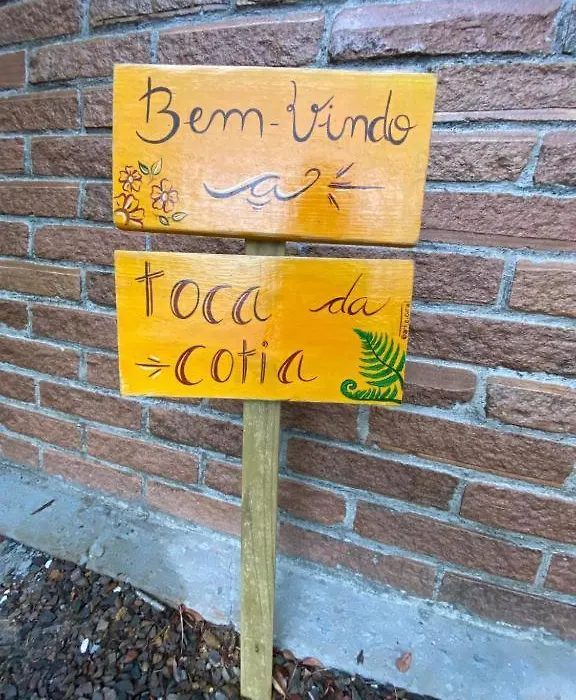 Bem-Vindo
a
toca da
cotia